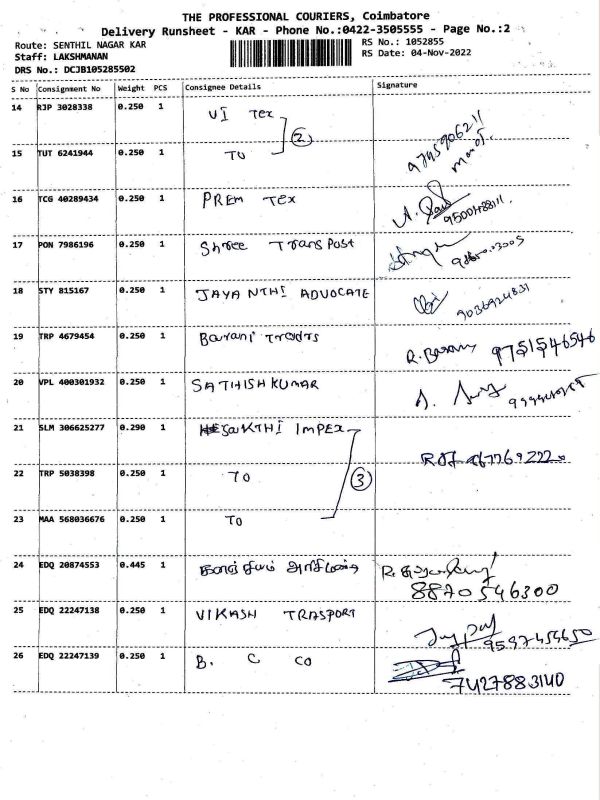 THE PROFESSIONAL COURIERS, Coimbatore
Delivery Runsheet - KAR - Phone No.:0422-3505555 - Page No.:2
Route: SENTHIL NAGAR KAR RS No.: 1052855
Staff: LAKSHMANAN RS Date: 04-Nov-2022
DRS No.: DCJB105285502
S No Consignment No Weight PCS Consignee Details Signature
14 RJP 3028338 0.250 1 VI Tex
2
15 TUT 6241944 0.250 1 TO
16 TCG 40289434 0.250 1 PREM Tex
17 PON 7986196 0.250 1 Shree Transpost
18 STY 815167 0.250 1 JAYANTHI ADVOCATE
9036924831
19 TRP 4679454 0.250 1 Barani Tradrs
9751546546
20 VPL 400301932 0.250 1 SATHISH KUMAR
21 SLM 306625277 0.290 1 SaKTHI IMPEX
22 TRP 5038398 0.250 1 TO
3
23 MAA 568036676 0.250 1 TO
24 EDQ 20874553 0.445 1
8870546300
25 EDQ 22247138 0.250 1 VIKASH TRASPORT
9597454650
26 EDQ 22247139 0.250 1 B. C CO
7427883140